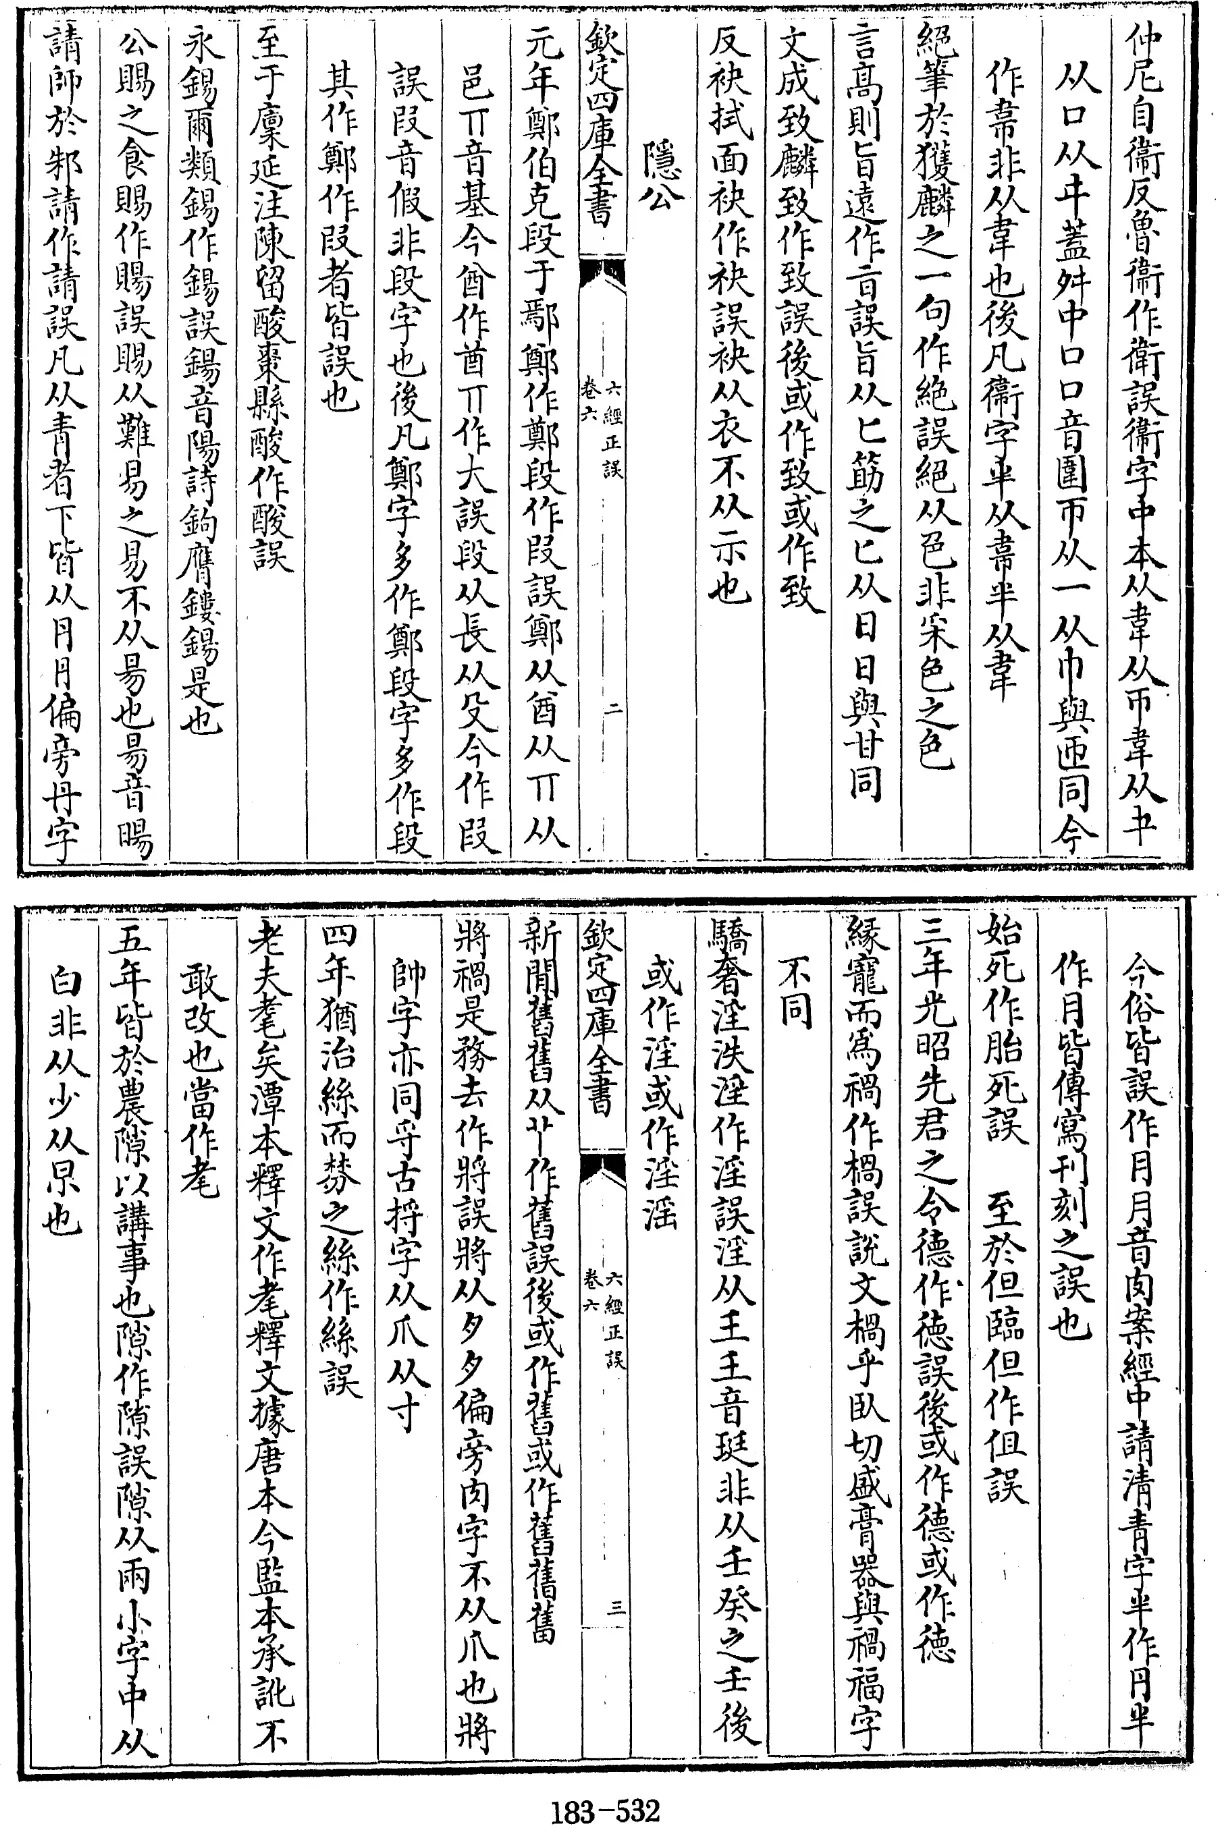 仲尼自衞反魯衞作衛誤衞字中本从韋从帀韋从㐄
从口从㐄蓋舛中口口音圍帀从一从巾與匝同今
作帇非从韋也後凡衞字半从帇半从韋
絕筆於獲麟之一句作絶誤絕从㔾非采色之色
言高則旨遠作㫖誤旨从匕筯之匕从日日與甘同
文成致麟致作致誤後或作致或作致
反袂拭面袂作袂誤袂从衣不从示也
隱公
欽定四庫全書
六經正誤
卷六
二
元年鄭伯克段于鄢鄭作鄭段作叚誤鄭从酋从丌从
邑丌音基今酋作酋丌作大誤段从長从殳今作叚
誤叚音假非段字也後凡鄭字多作鄭段字多作段
其作鄭作叚者皆誤也
至于廩延注陳留酸棗縣酸作酸誤
永錫爾類錫作鍚誤鍚音陽詩鉤膺鏤鍚是也
公賜之食賜作賜誤賜从難易之易不从昜也昜音暘
請師於邾請作請誤凡从青者下皆从円円偏旁丹字
今俗皆誤作月月音肉案經中請清青字半作円半
作月皆傳寫刊刻之誤也
始死作胎死誤 至於但臨但作伹誤
三年光昭先君之令德作徳誤後或作德或作徳
緣寵而爲禍作楇誤說文楇乎臥切盛膏器與禍福字
不同
驕奢淫泆淫作滛誤淫从王王音珽非从壬癸之壬後
或作淫或作滛滛
欽定四庫全書
六經正誤
卷六
三
新間舊舊从丫作舊誤後或作舊或作舊舊舊
將禍是務去作將誤將从夕夕偏旁肉字不从爪也將
帥字亦同寽古捋字从爪从寸
四年猶治絲而棼之絲作絲誤
老夫耄矣潭本釋文作耄釋文據唐本今監本承訛不
敢改也當作耄
五年皆於農隙以講事也隙作隟誤隙从兩小字中从
白非从少从㫐也
183-532